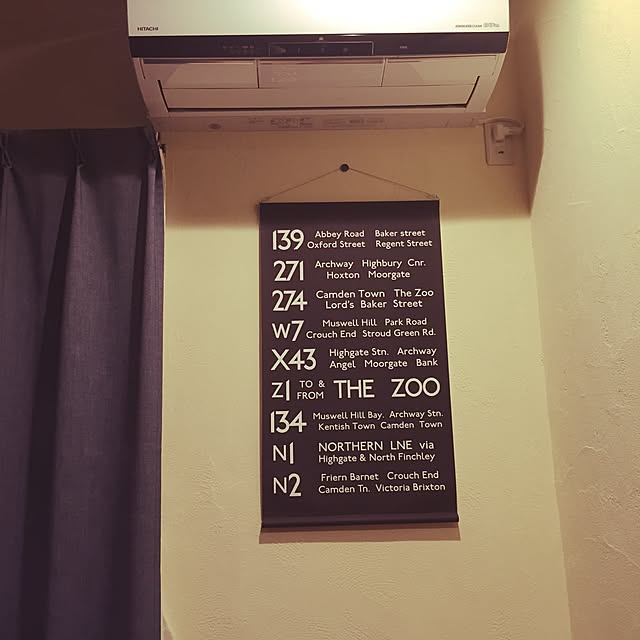 HITACHI
139 Abbey Road Baker street
Oxford Street Regent Street
271 Archway Highbury Cnr.
Hoxton Moorgate
274 Camden Town The Zoo
Lord's Baker Street
W7 Muswell Hill Park Road
Crouch End Stroud Green Rd.
X43 Highgate Stn. Archway
Angel Moorgate Bank
Z1 TO & FROM THE ZOO
134 Muswell Hill Bay. Archway Stn.
Kentish Town Camden Town
N1 NORTHERN LNE via
Highgate & North Finchley
N2 Friern Barnet Crouch End
Camden Tn. Victoria Brixton